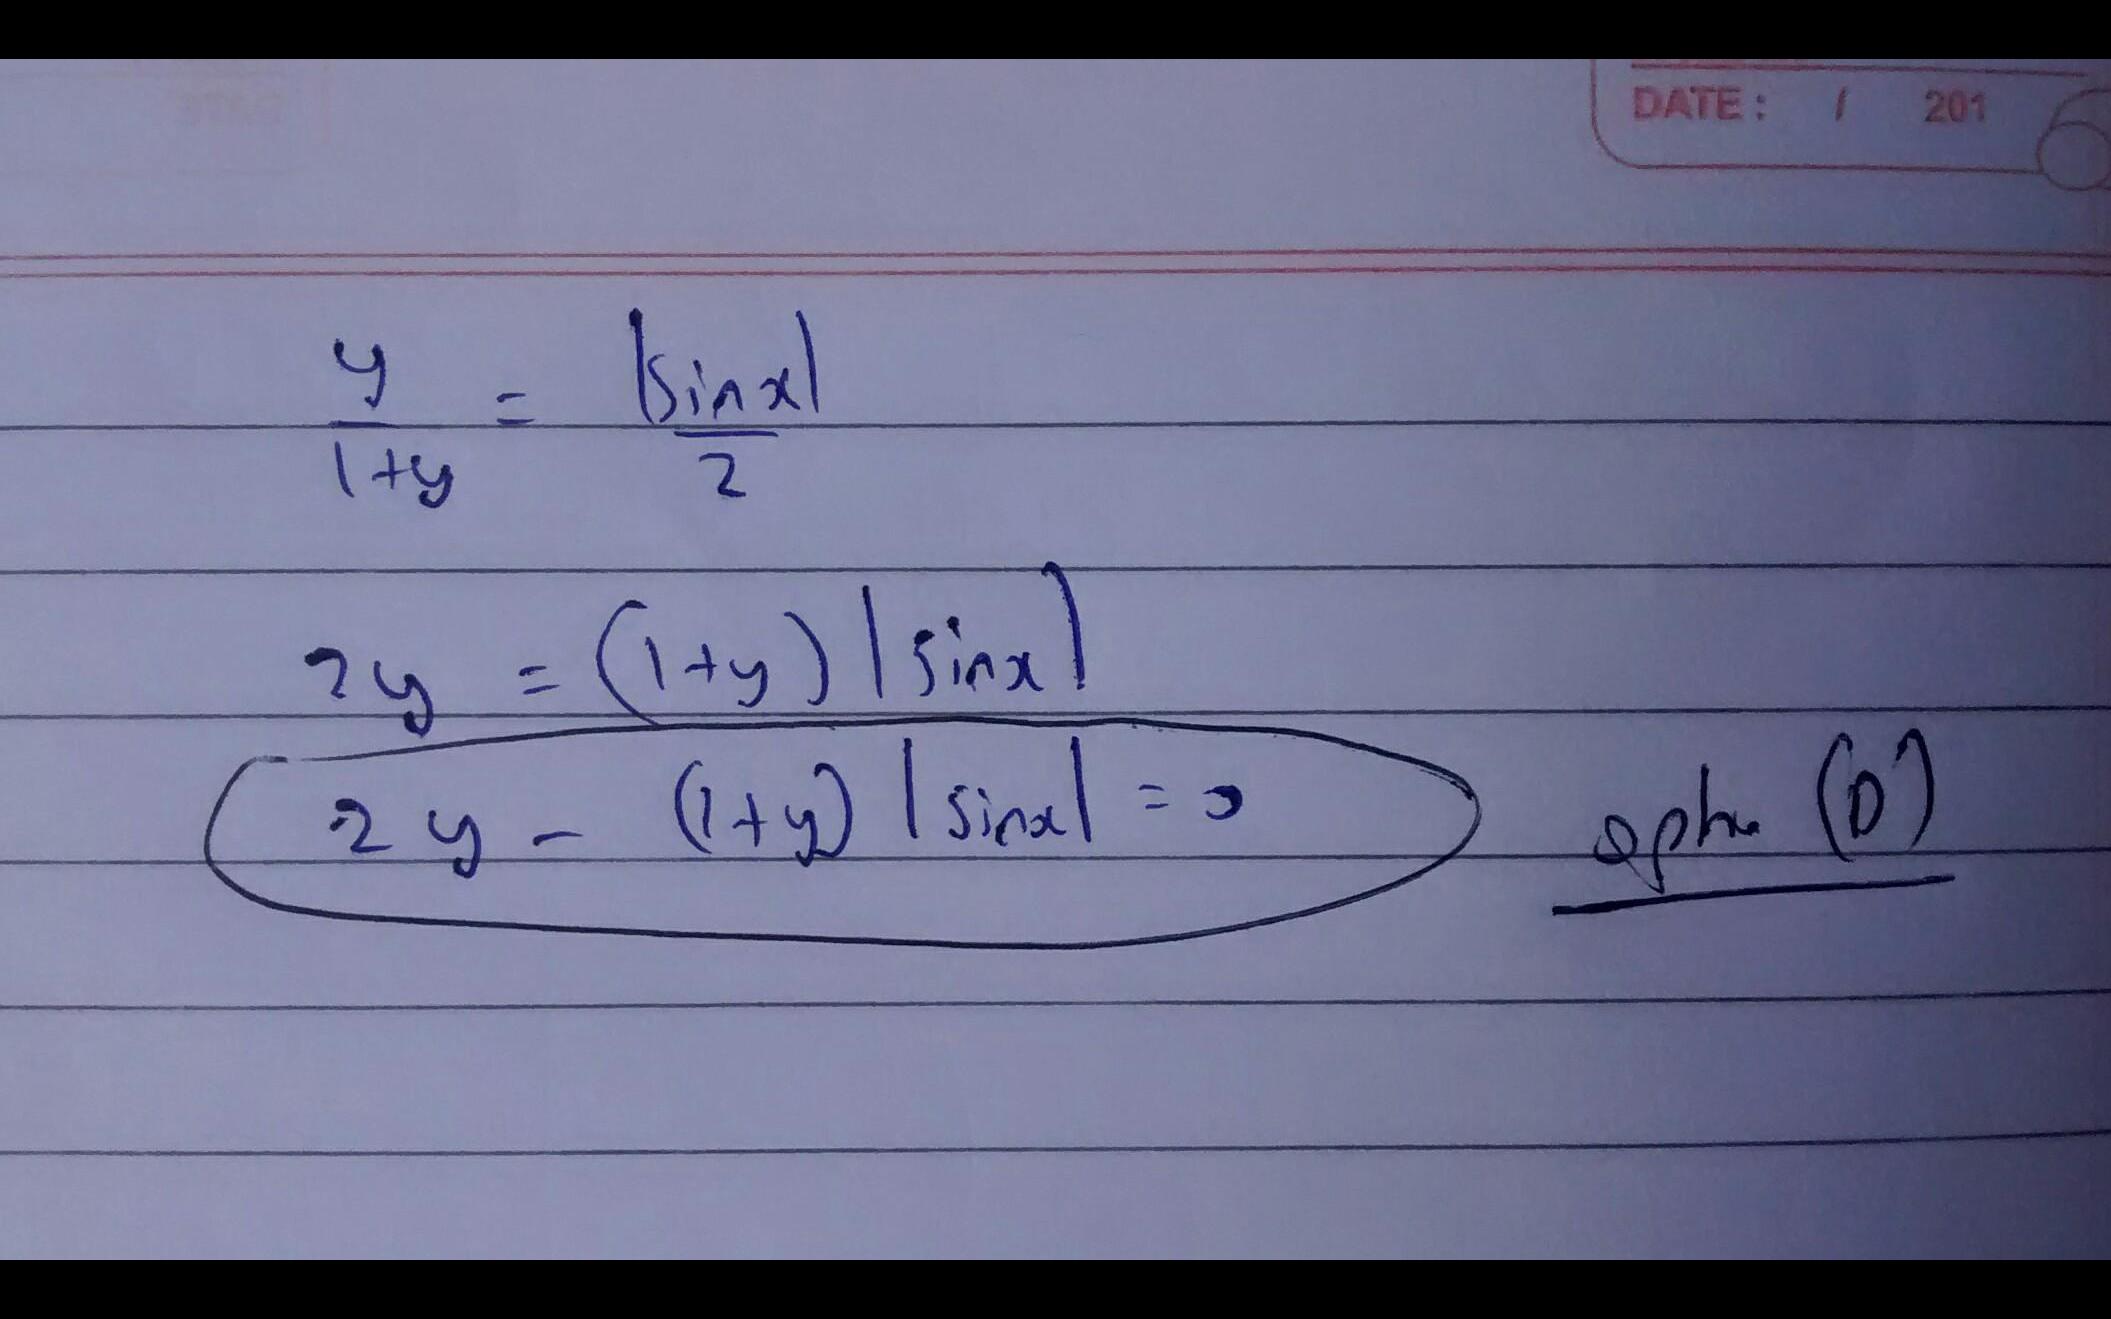 DATE: / 201
y/(1+y) = |sinx|/2
2y = (1+y) |sinx|
2y - (1+y) |sinx| = 0
(D)